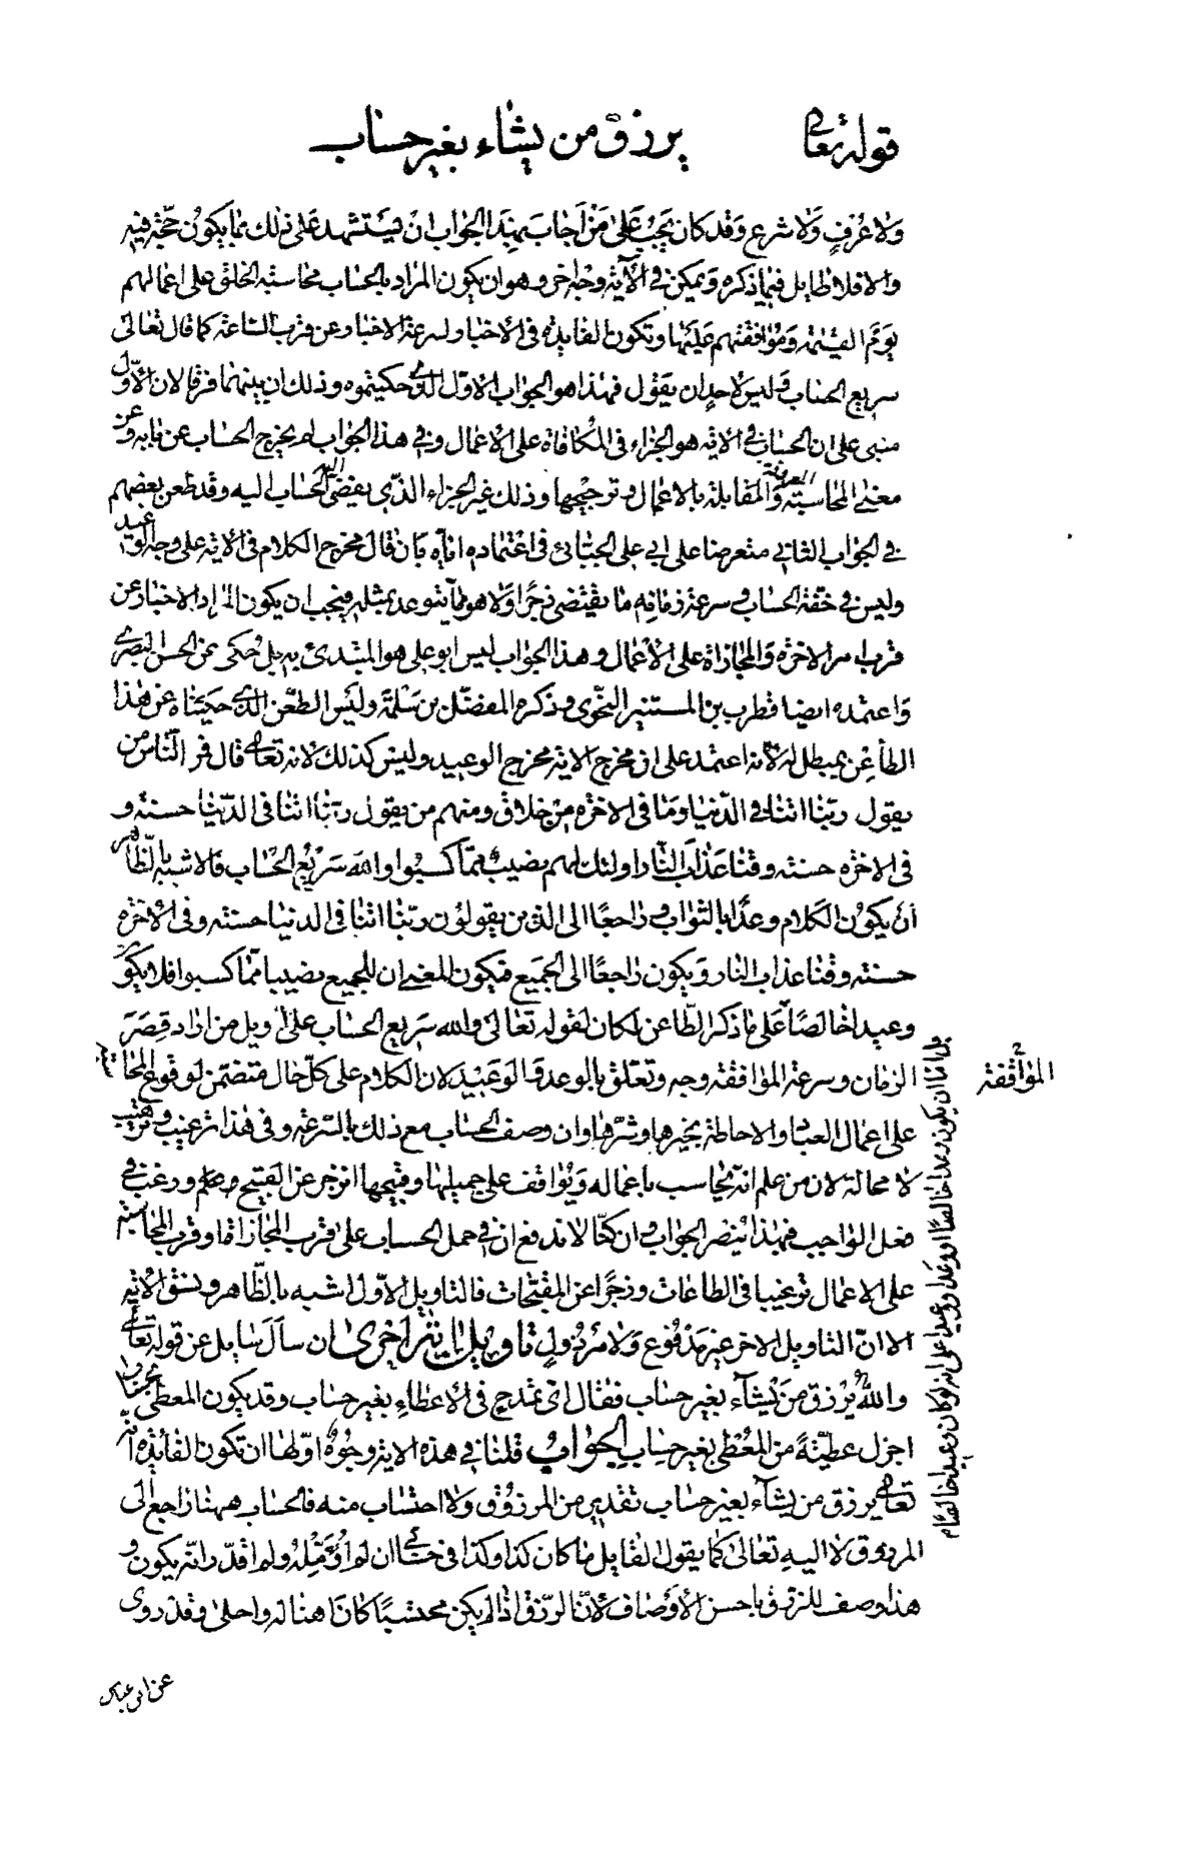 قوله تعالى يرزق من يشاء بغير حساب
ولا عُرْفٍ ولا شرع وقد كان يجب على من أجاب بهذا الجواب ان يستشهد على ذلك بما يكون حجّة فيه
والا فلا طايل فيما ذكره ويمكن في الآية وجه اخر وهو ان يكون المراد بالحساب محاسبة الخلق على اعمالهم
يوم القيمة وموافقتهم عليها وتكون الفايدة فى الاخبار بسرعة الاخبار عن قرب الساعة كما قال تعالى
سريع الحساب وليس لاحد ان يقول فهذا هو الجواب الاول الذي حكيتموه وذلك ان بينهما فرقا لان الأوّل
مبنى على ان الحساب في الاية هو الجزاء فى المكافاة على الاعمال وفي هذا الجواب لم يخرج الحساب عن بابه وعن
معنى المحاسبة المعروفة والمقابلة بالاعمال وترجيحها وذلك غير الجزاء الذي يفضى الحساب اليه وقد طعن بعضهم
في الجواب الثاني معترضا على ابي على الجبّائى فى اعتماده اياه بان قال مخرج الكلام فى الاية على وجه الوعيد
وليس في خفّة الحساب وسرعة زمانه ما يقتضى زجرًا ولا هو مما يتوعد بمثله فيجب ان يكون المراد الاخبار عن
قرب امر الاخرة والمجازاة على الاعمال وهذا الجواب ليس ابو على هو المبتدئ به بل حُكى عن الحسن البصري
واعتمده ايضا قطرب بن المستنير النحوى وذكره المفضّل بن سَلمَة وليس الطعن الذي حكيناه عن هذا
الطاعِن بمبطل له لانه اعتمد على ان مخرج الاية مخرج الوعيد وليس كذلك لانه تعالى قال فمن النّاس من
يقول ربّنا اتنا في الدّنيا وما فى الاخرة من خلاق ومنهم من يقول ربّنا اتنا فى الدّنيا حسنة و
فى الاخرة حسنة وقنا عَذابَ النّار اولئك لهم نصيبٌ ممّا كسبوا والله سَريعُ الحساب فالاشبه بالظّاهر
أن يكون الكلام وعدًا بالثواب وراجعًا الى الذين يقولون ربّنا اتنا فى الدنيا حسنة وفى الاخرة
حسنة وقنا عذاب النار ويكون راجعًا الى الجميع فيكون المعنى ان للجميع نصيبا ممّا كسبوا فلا يكون
وعيدا خالصًا على ما ذكر الطّاعن لكان لقوله تعالى والله سَريع الحساب على تاويل من اراد قِصَرَ
الزمان وسرعة الموافقة وجه وتعلّق بالوعد والوعيد لان الكلام على كلّ حال متضمّن لوقوع المحاسبة
على اعمال العباد والاحاطة بخيرها وشرّها وان وصف الحساب مع ذلك بالسّرعة وفى هذا ترغيب وترهيب
لا محالة لان من علم انّه يحاسب باعماله ويُواقف على جميلها وقبيحها انزجر عن القبيح وعلم ورغب في
فعل الواجب فبهذا يُنصر الجواب وان كنّا لا ندفع ان في حمل الحساب على قرب المجازاة او قرب المحاسبة
على الاعمال ترغيبا فى الطاعات وزجرًا عن المقبّحات فالتاويل الاوّل اشبه بالظّاهر ونسق الاية
الا انّ التاويل الاخر غير مَدفوع ولا مرذول تاويل اية اخرى ان سأل سايل عن قوله تعالى
والله يَرْزق من يَشآء بغير حساب فقال اى تمدح فى الاعطاء بغير حساب وقد يكون المعطى بحساب
اجزل عطيّةً من المعُطى بغير حساب الجواب قلنا في هذه الاية وجُوهٌ اوّلها ان تكون الفايدة انه
تعالى يرزق من يشآء بغير حساب تقدير من المرزوُق ولا احتساب منه فالحساب ههنا راجع الى
المرزوق لا اليه تعالى كما يقول القايل ما كان كذا وكذا في حسابي ان لم اؤمّله ولم اقدّر انّه يكون و
هذا وصف للرّزق باحسن الأوصاف لانّ الرّزق اذا لم يكن محتسبًا كان اهنا له واحلى وقد روى
عن ابى عباس
الموافقة
ولنا ان يكون وعدا خالصًا او وعدا ووعيدا على انه لو كان وعيدا خالصًا